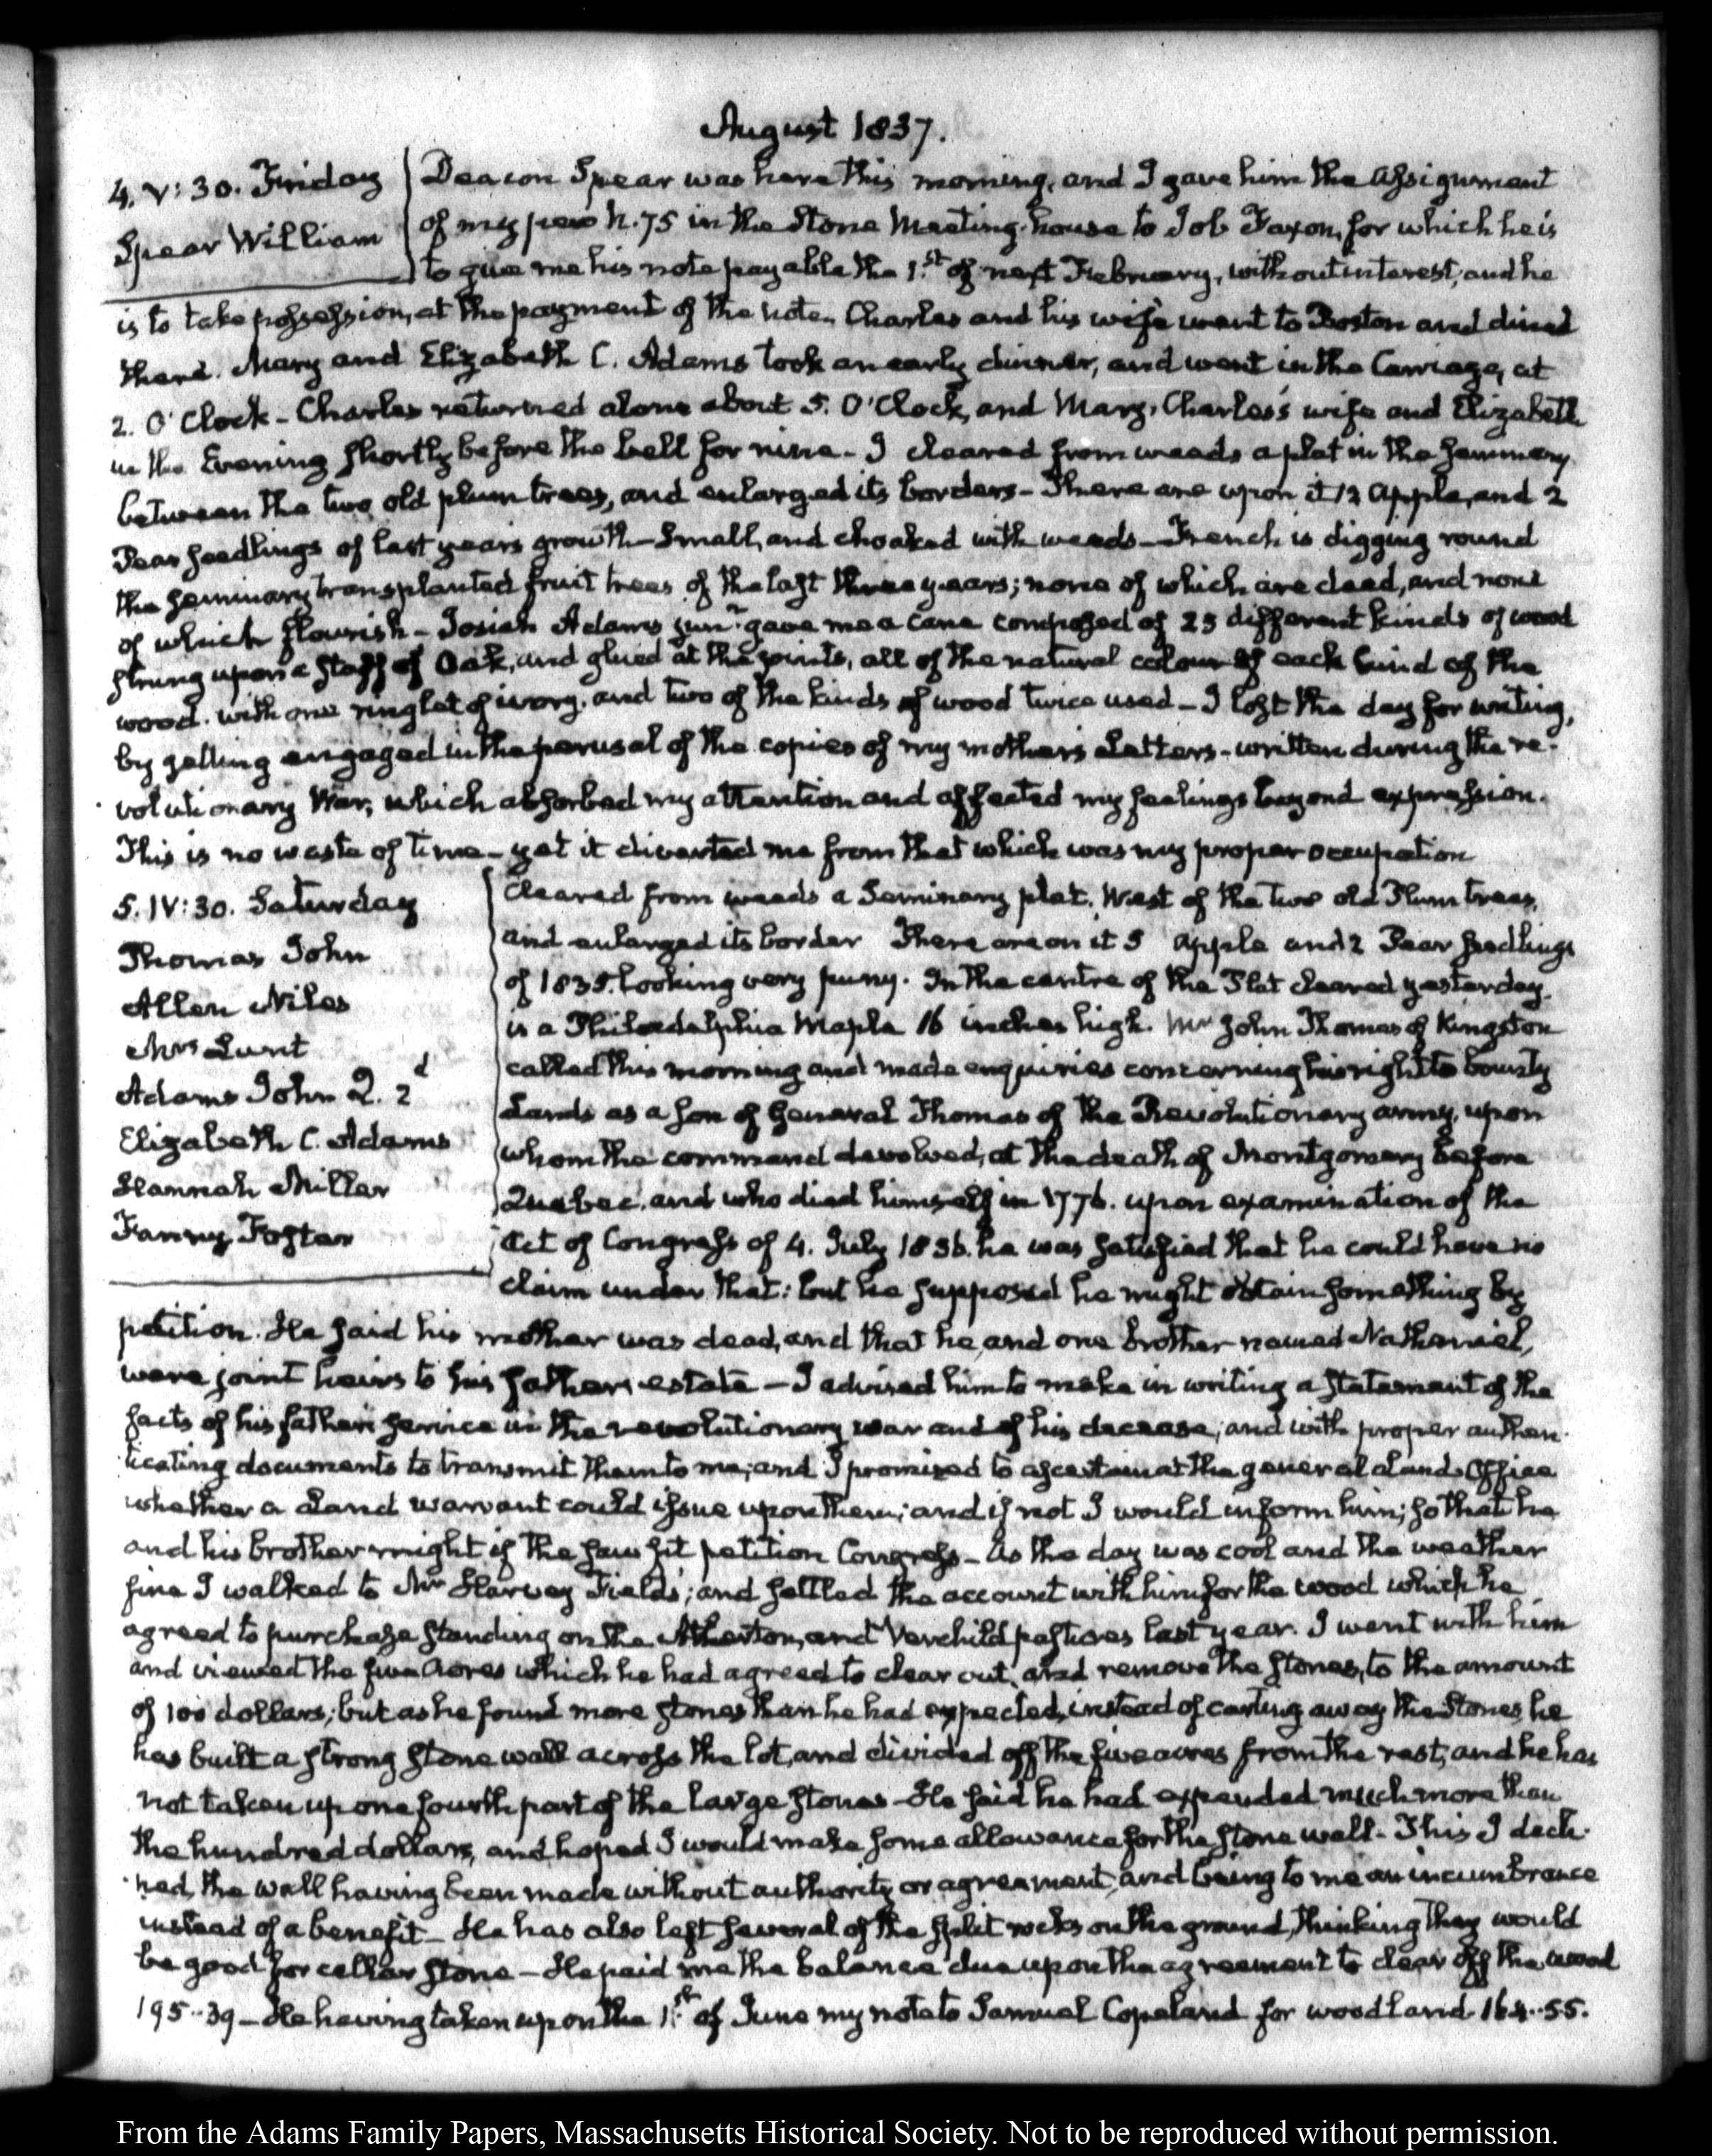 August 1837.
4. V: 30. Friday
Spear William
Deacon Spear was here this morning, and I gave him the assignment
of my pew N. 75 in the Stone Meeting-house to Job Faxon, for which he is
to give me his note payable the 1.st of next February, without interest, and he
is to take possession, at the payment of the note. Charles and his wife went to Boston and dined
there. Mary and Elizabeth C. Adams took an early dinner, and went in the Carriage, at
2. O'Clock - Charles returned alone about 5. O'Clock, and Mary, Charles's wife and Elizabeth
in the Evening shortly before the bell for nine - I cleared from weeds a plat in the Seminary
between the two old plum trees, and enlarged its borders - There are upon it 12 Apple, and 2
Pear seedlings of last years growth - Small, and choaked with weeds - French is digging round
the Seminary transplanted fruit trees of the last three years; none of which are dead, and none
of which flourish - Josiah Adams junr. gave me a cane composed of 25 different kinds of wood
strung upon a staff of Oak, and glued at the joints, all of the natural colour of each kind of the
wood. with one ringlet of ivory. and two of the kinds of wood twice used - I lost the day for writing,
by getting engaged in the perusal of the copies of my mother's Letters - written during the re-
volutionary War, which absorbed my attention and affected my feelings beyond expression.
This is no waste of time - yet it diverted me from that which was my proper occupation
5. IV: 30. Saturday
Thomas John
Allen Niles
Mrs Lunt
Adams John Q. 2d
Elizabeth C. Adams
Hannah Miller
Fanny Foster
Cleared from weeds a Seminary plat. West of the two old Plum trees,
and enlarged its border There are on it 5 apple and 2 Pear seedlings
of 1835. looking very puny. In the centre of the Plat cleared yesterday
is a Philadelphia Maple 16 inches high. Mr John Thomas of Kingston
called this morning and made enquiries concerning his right to bounty
Lands as a son of General Thomas of the Revolutionary army, upon
whom the command devolved, at the death of Montgomery before
Quebec, and who died himself in 1776. upon examination of the
Act of Congress of 4. July 1836. he was satisfied that he could have no
claim under that: but he supposed he might obtain something by
petition. He said his mother was dead, and that he, and one brother named Nathaniel,
were joint heirs to his father's estate - I advised him to make in writing a statement of the
facts of his father's service in the revolutionary war and of his decease; and with proper authen-
ticating documents to transmit them to me; and I promised to ascertain at the general Land Office
whether a Land warrant could issue upon them; and if not I would inform him; so that he
and his brother might if the saw fit petition Congress - As the day was cool and the weather
fine I walked to Mr Harvey Field's; and settled the account with him for the wood which he
agreed to purchase standing on the Atherton, and Verchild pastures last year. I went with him
and viewed the five Acres which he had agreed to clear out, and remove the stones, to the amount
of 100 dollars; but as he found more stones than he had expected, instead of carting away the Stones, he
has built a strong stone wall across the lot, and divided off the five acres from the rest, and he has
not taken up one fourth part of the large stones - He said he had expended much more than
the hundred dollars, and hoped I would make some allowance for the stone wall - This I decli-
ned, the wall having been made without authority or agreement, and being to me an incumbrance
instead of a benefit - He has also left several of the split rocks on the ground, thinking they would
be good for cellar stone - He paid me the balance due upon the agreement to clear off the wood
195..39 - He having taken up on the 1.st of June my note to Samuel Copeland for woodland 164..55.
From the Adams Family Papers, Massachusetts Historical Society. Not to be reproduced without permission.